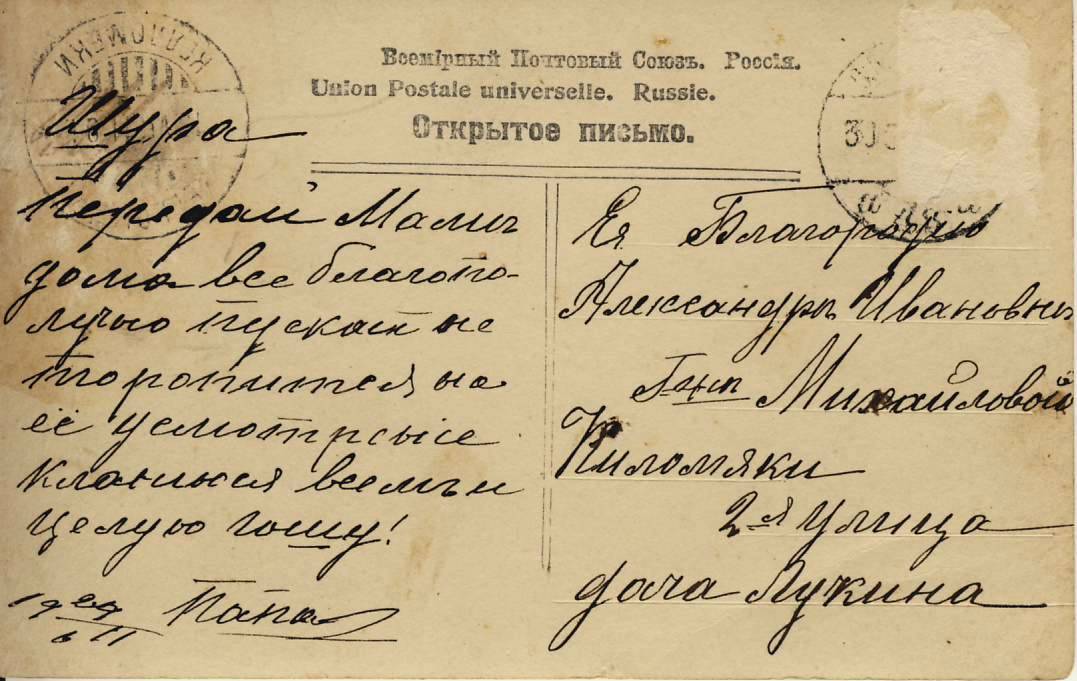 Всемірный Почтовый Союзъ. Россія.
Union Postale universelle. Russie.
Открытое письмо.
KELLOMÄKI
30
Шура
передай Мамѣ
дома все благопо-
лучно пускай не
торопится на
её усмотрение
кланяюся всемъ и
целую Гошу!
Папа
19
Ея Благородію
Александрѣ Ивановнѣ
Госп Михайловой
Киломяки
2-я улица
дача Лукина